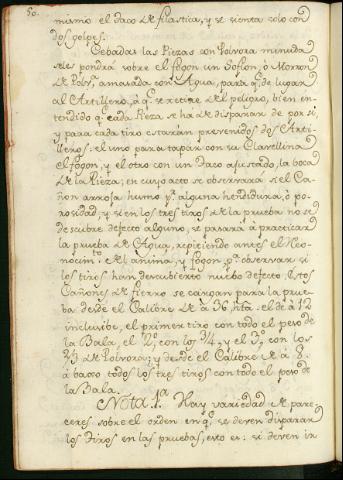 50.
mismo el taco de filastica, y se sienta solo con
dos golpes.
Cebadas las Piezas con Polvora menuda
se les pondrá sobre el fogon un Sofion, ò Morron
de Polv.ª amasada con Agua, para q.e de lugar
al Artillero, à q.e se retire del peligro, bien en-
tendido q.e cada Pieza se ha de disparar de por si,
y para cada tiro estarán prevenidos dos Arti-
lleros: el uno para tapar con su Clavellina
el fogon, y el otro con un taco ajustado, la boca
de la Pieza; en cuyo acto se observará si el Ca-
ñon arroja humo p.r alguna hendidura, ò po-
rosidad, y si en los tres tiros de la prueba no se
descubre defecto alguno, se pasará à practicar
la prueba de Agua, repitiendo antes el Reco-
nocim.to del anima, y fogon, p.ª observar si
los tiros han descubierto nuebo defecto. Estos
Cañones de fierro se cargan para la prue-
ba desde el Calibre de à 36 h.ta el de à 12
inclusibe, el primer tiro con todo el peso de
la Bala, el 2.º con los 3/4, y el 3.º con los
2/3 de Polvora; y desde el Calibre de à 8.
à baxo todos los tres tiros con todo el peso de
la Bala.
Nota 1.ª Hay variedad de pare-
ceres sobre el orden en q.e se deven disparar
los tiros en las pruebas, esto es: si deven ir